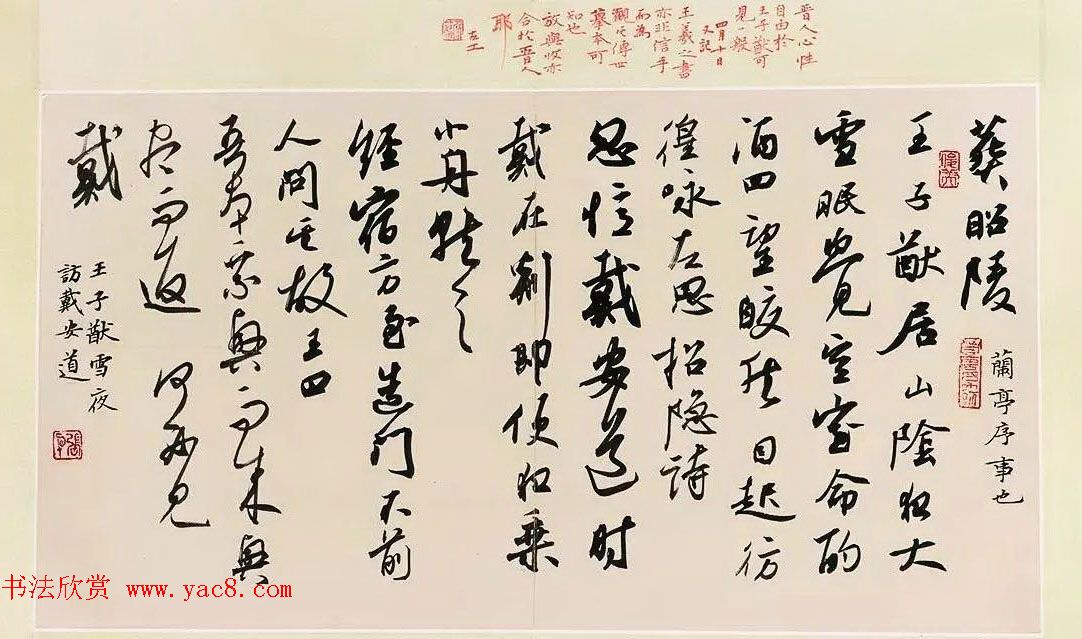 晋人心性
自由於
王子猷可
見一般
四月十日
又記
王羲之書
亦非信手
而為
觀其傳世
摹本可
知也
放與收亦
合於晋人
耶
左工
葬昭陵
蘭亭序事也
王子猷居山陰夜大
雪眠覺室命酌
酒四望皎然因起彷
徨咏左思招隐詩
忽憶戴安道时
戴在剡即便夜乘
小舟就之
經宿方至造门不前
人問其故王曰
吾本乘興而来興
尽而返何必見
戴
王子猷雪夜
訪戴安道
书法欣赏 www.yac8.com